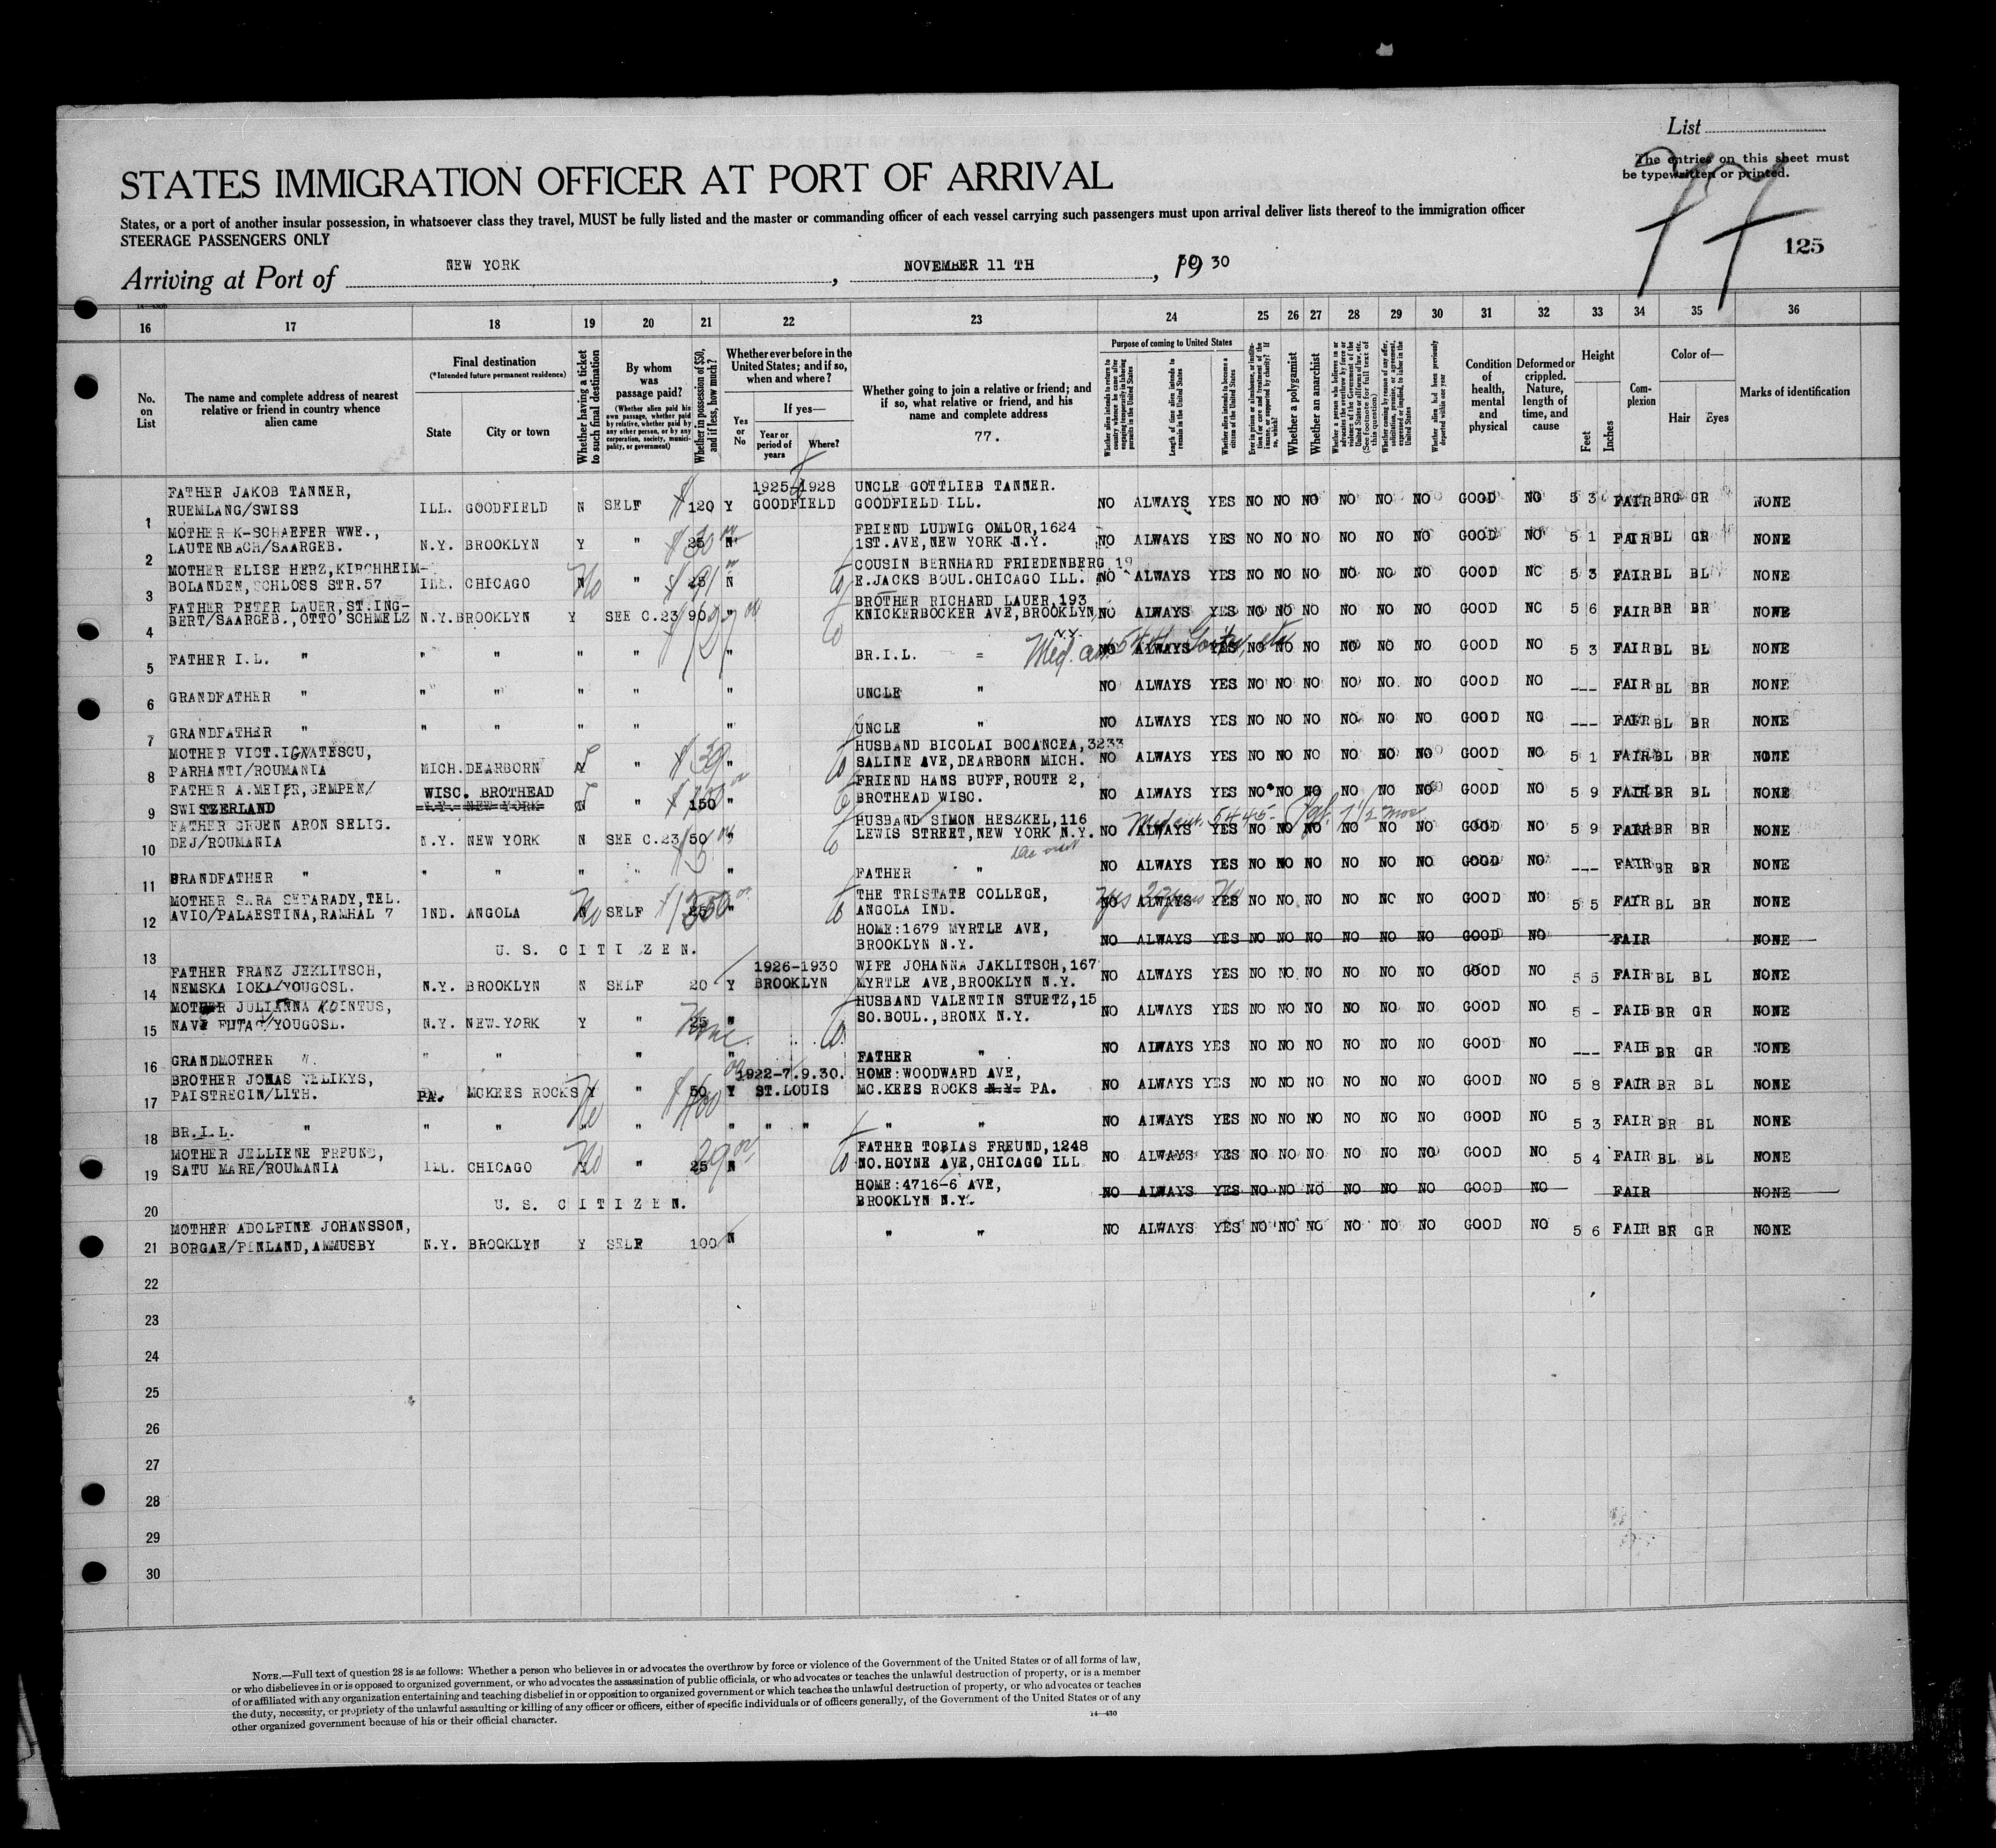 List
The entries on this sheet must
be typewritten or printed.
77
125
STATES IMMIGRATION OFFICER AT PORT OF ARRIVAL
States, or a port of another insular possession, in whatsoever class they travel, MUST be fully listed and the master or commanding officer of each vessel carrying such passengers must upon arrival deliver lists thereof to the immigration officer
STEERAGE PASSENGERS ONLY
Arriving at Port of NEW YORK, NOVEMBER 11 TH, 19 30
16 17 18 19 20 21 22 23 24 25 26 27 28 29 30 31 32 33 34 35 36
No. on List
The name and complete address of nearest relative or friend in country whence alien came
Final destination
(*Intended future permanent residence)
State
City or town
Whether having a ticket to such final destination
By whom was passage paid?
(Whether alien paid his own passage, whether paid by relative, whether paid by any other person, or by any corporation, society, municipality, or government)
Whether in possession of $50, and if less, how much?
Whether ever before in the United States; and if so, when and where?
Yes or No
If yes—
Year or period of years
Where?
Whether going to join a relative or friend; and if so, what relative or friend, and his name and complete address
77.
Purpose of coming to United States
Whether alien intends to return to country whence he came after engaging temporarily in laboring pursuits in the United States
Length of time alien intends to remain in the United States
Whether alien intends to become a citizen of the United States
Whether a polygamist
Whether an anarchist
Whether alien had been previously deported within one year
Condition of health, mental and physical
Deformed or crippled. Nature, length of time, and cause
Height
Feet
Inches
Complexion
Color of—
Hair
Eyes
Marks of identification
FATHER JAKOB TANNER, 1925-1928 UNCLE GOTTLIEB TANNER.
1 RUEMLANG/SWISS ILL. GOODFIELD N SELF 120 Y GOODFIELD GOODFIELD ILL. NO ALWAYS YES NO NO NO NO NO NO GOOD NO 5 3 FAIR BRG GR NONE
MOTHER K-SCHAEFER WWE., FRIEND LUDWIG OMLOR,1624
2 LAUTENBACH/SAARGEB. N.Y. BROOKLYN Y " 25 N 1ST.AVE,NEW YORK N.Y. NO ALWAYS YES NO NO NO NO NO NO GOOD NO 5 1 FAIR BL GR NONE
MOTHER ELISE HERZ,KIRCHHEIM- COUSIN BERNHARD FRIEDENBERG 19
3 BOLANDEN,SCHLOSS STR.57 ILL. CHICAGO N No " 25 N E.JACKS BOUL.CHICAGO ILL. NO ALWAYS YES NO NO NO NO NO NO GOOD NO 5 3 FAIR BL BL NONE
FATHER PETER LAUER,ST.ING- BROTHER RICHARD LAUER,193
4 BERT/SAARGEB.,OTTO SCHMELZ N.Y. BROOKLYN Y SEE C.23 90 " KNICKERBOCKER AVE,BROOKLYN N.Y. NO ALWAYS YES NO NO NO NO NO NO GOOD NO 5 6 FAIR BR BR NONE
5 FATHER I.L. " " " " " " BR.I.L. = NO ALWAYS YES NO NO NO NO NO NO GOOD NO 5 3 FAIR BL BL NONE
6 GRANDFATHER " " " " " " UNCLE " NO ALWAYS YES NO NO NO NO NO NO GOOD NO --- FAIR BL BR NONE
7 GRANDFATHER " " " " " " UNCLE " NO ALWAYS YES NO NO NO NO NO NO GOOD NO --- FAIR BL BR NONE
MOTHER VICT.IGNATESCU, HUSBAND BICOLAI BOCANCEA,3233
8 PARHANTI/ROUMANIA MICH. DEARBORN N " $ 30 " SALINE AVE,DEARBORN MICH. NO ALWAYS YES NO NO NO NO NO NO GOOD NO 5 1 FAIR BL BR NONE
FATHER A.MEIER,GEMPEN/ WISC. BROTHEAD FRIEND HANS BUFF,ROUTE 2,
9 SWITZERLAND N.Y. NEW YORK N " 150 " BROTHEAD WISC. NO ALWAYS YES NO NO NO NO NO NO GOOD NO 5 9 FAIR BR BL NONE
FATHER GRUEN ARON SELIG. HUSBAND SIMON HESZKEL,116
10 DEJ/ROUMANIA N.Y. NEW YORK N SEE C.23 50 " LEWIS STREET,NEW YORK N.Y. NO ALWAYS YES NO NO NO NO NO NO GOOD NO 5 9 FAIR BR BR NONE
11 GRANDFATHER " " " " " " FATHER " NO ALWAYS YES NO NO NO NO NO NO GOOD NO --- FAIR BR BR NONE
MOTHER SARA SEPARADY,TEL. THE TRISTATE COLLEGE,
12 AVIO/PALAESTINA,RAMHAL 7 IND. ANGOLA N No SELF 25 " ANGOLA IND. NO ALWAYS YES NO NO NO NO NO NO GOOD NO 5 5 FAIR BL BR NONE
HOME:1679 MYRTLE AVE,
13 U. S. CITIZEN. BROOKLYN N.Y. NO ALWAYS YES NO NO NO NO NO NO GOOD NO FAIR NONE
FATHER FRANZ JEKLITSCH, 1926-1930 WIFE JOHANNA JAKLITSCH,167
14 NEMSKA IOKA/YOUGOSL. N.Y. BROOKLYN N SELF 20 Y BROOKLYN MYRTLE AVE,BROOKLYN N.Y. NO ALWAYS YES NO NO NO NO NO NO GOOD NO 5 5 FAIR BL BL NONE
MOTHER JULIANNA KOINTUS, HUSBAND VALENTIN STUETZ,15
15 NAVI FUTAC/YOUGOSL. N.Y. NEW.YORK Y " 25 None N SO.BOUL.,BRONX N.Y. NO ALWAYS YES NO NO NO NO NO NO GOOD NO 5 - FAIR BR GR NONE
16 GRANDMOTHER " " " " " FATHER " NO ALWAYS YES NO NO NO NO NO NO GOOD NO --- FAIR BR GR NONE
BROTHER JONAS VELIKYS, 1922-7.9.30. HOME:WOODWARD AVE,
17 PAISTRECIN/LITH. PA. MCKEES ROCKS Y No " 50 Y ST.LOUIS MC.KEES ROCKS N.Y. PA. NO ALWAYS YES NO NO NO NO NO NO GOOD NO 5 8 FAIR BR BL NONE
18 BR.I.L. " " " " " " " " " " NO ALWAYS YES NO NO NO NO NO NO GOOD NO 5 3 FAIR BR BL NONE
MOTHER JELLIENE FREUND, FATHER TOBIAS FREUND,1248
19 SATU MARE/ROUMANIA ILL. CHICAGO Y No " 25 N NO.HOYNE AVE,CHICAGO ILL NO ALWAYS YES NO NO NO NO NO NO GOOD NO 5 4 FAIR BL BL NONE
HOME:4716-6 AVE,
20 U. S. CITIZEN. BROOKLYN N.Y. NO ALWAYS YES NO NO NO NO NO NO GOOD NO FAIR NONE
MOTHER ADOLFINE JOHANSSON,
21 BORGAE/FINLAND,AMMUSBY N.Y. BROOKLYN Y SELF 100 N " " NO ALWAYS YES NO NO NO NO NO NO GOOD NO 5 6 FAIR BR GR NONE
22
23
24
25
26
27
28
29
30
NOTE.—Full text of question 28 is as follows: Whether a person who believes in or advocates the overthrow by force or violence of the Government of the United States or of all forms of law,
or who disbelieves in or is opposed to organized government, or who advocates the assassination of public officials, or who advocates or teaches the unlawful destruction of property, or is a member
of or affiliated with any organization entertaining and teaching disbelief in or opposition to organized government or which teaches the unlawful destruction of property, or who advocates or teaches
the duty, necessity, or propriety of the unlawful assaulting or killing of any officer or officers, either of specific individuals or of officers generally, of the Government of the United States or of any
other organized government because of his or their official character.
14—430